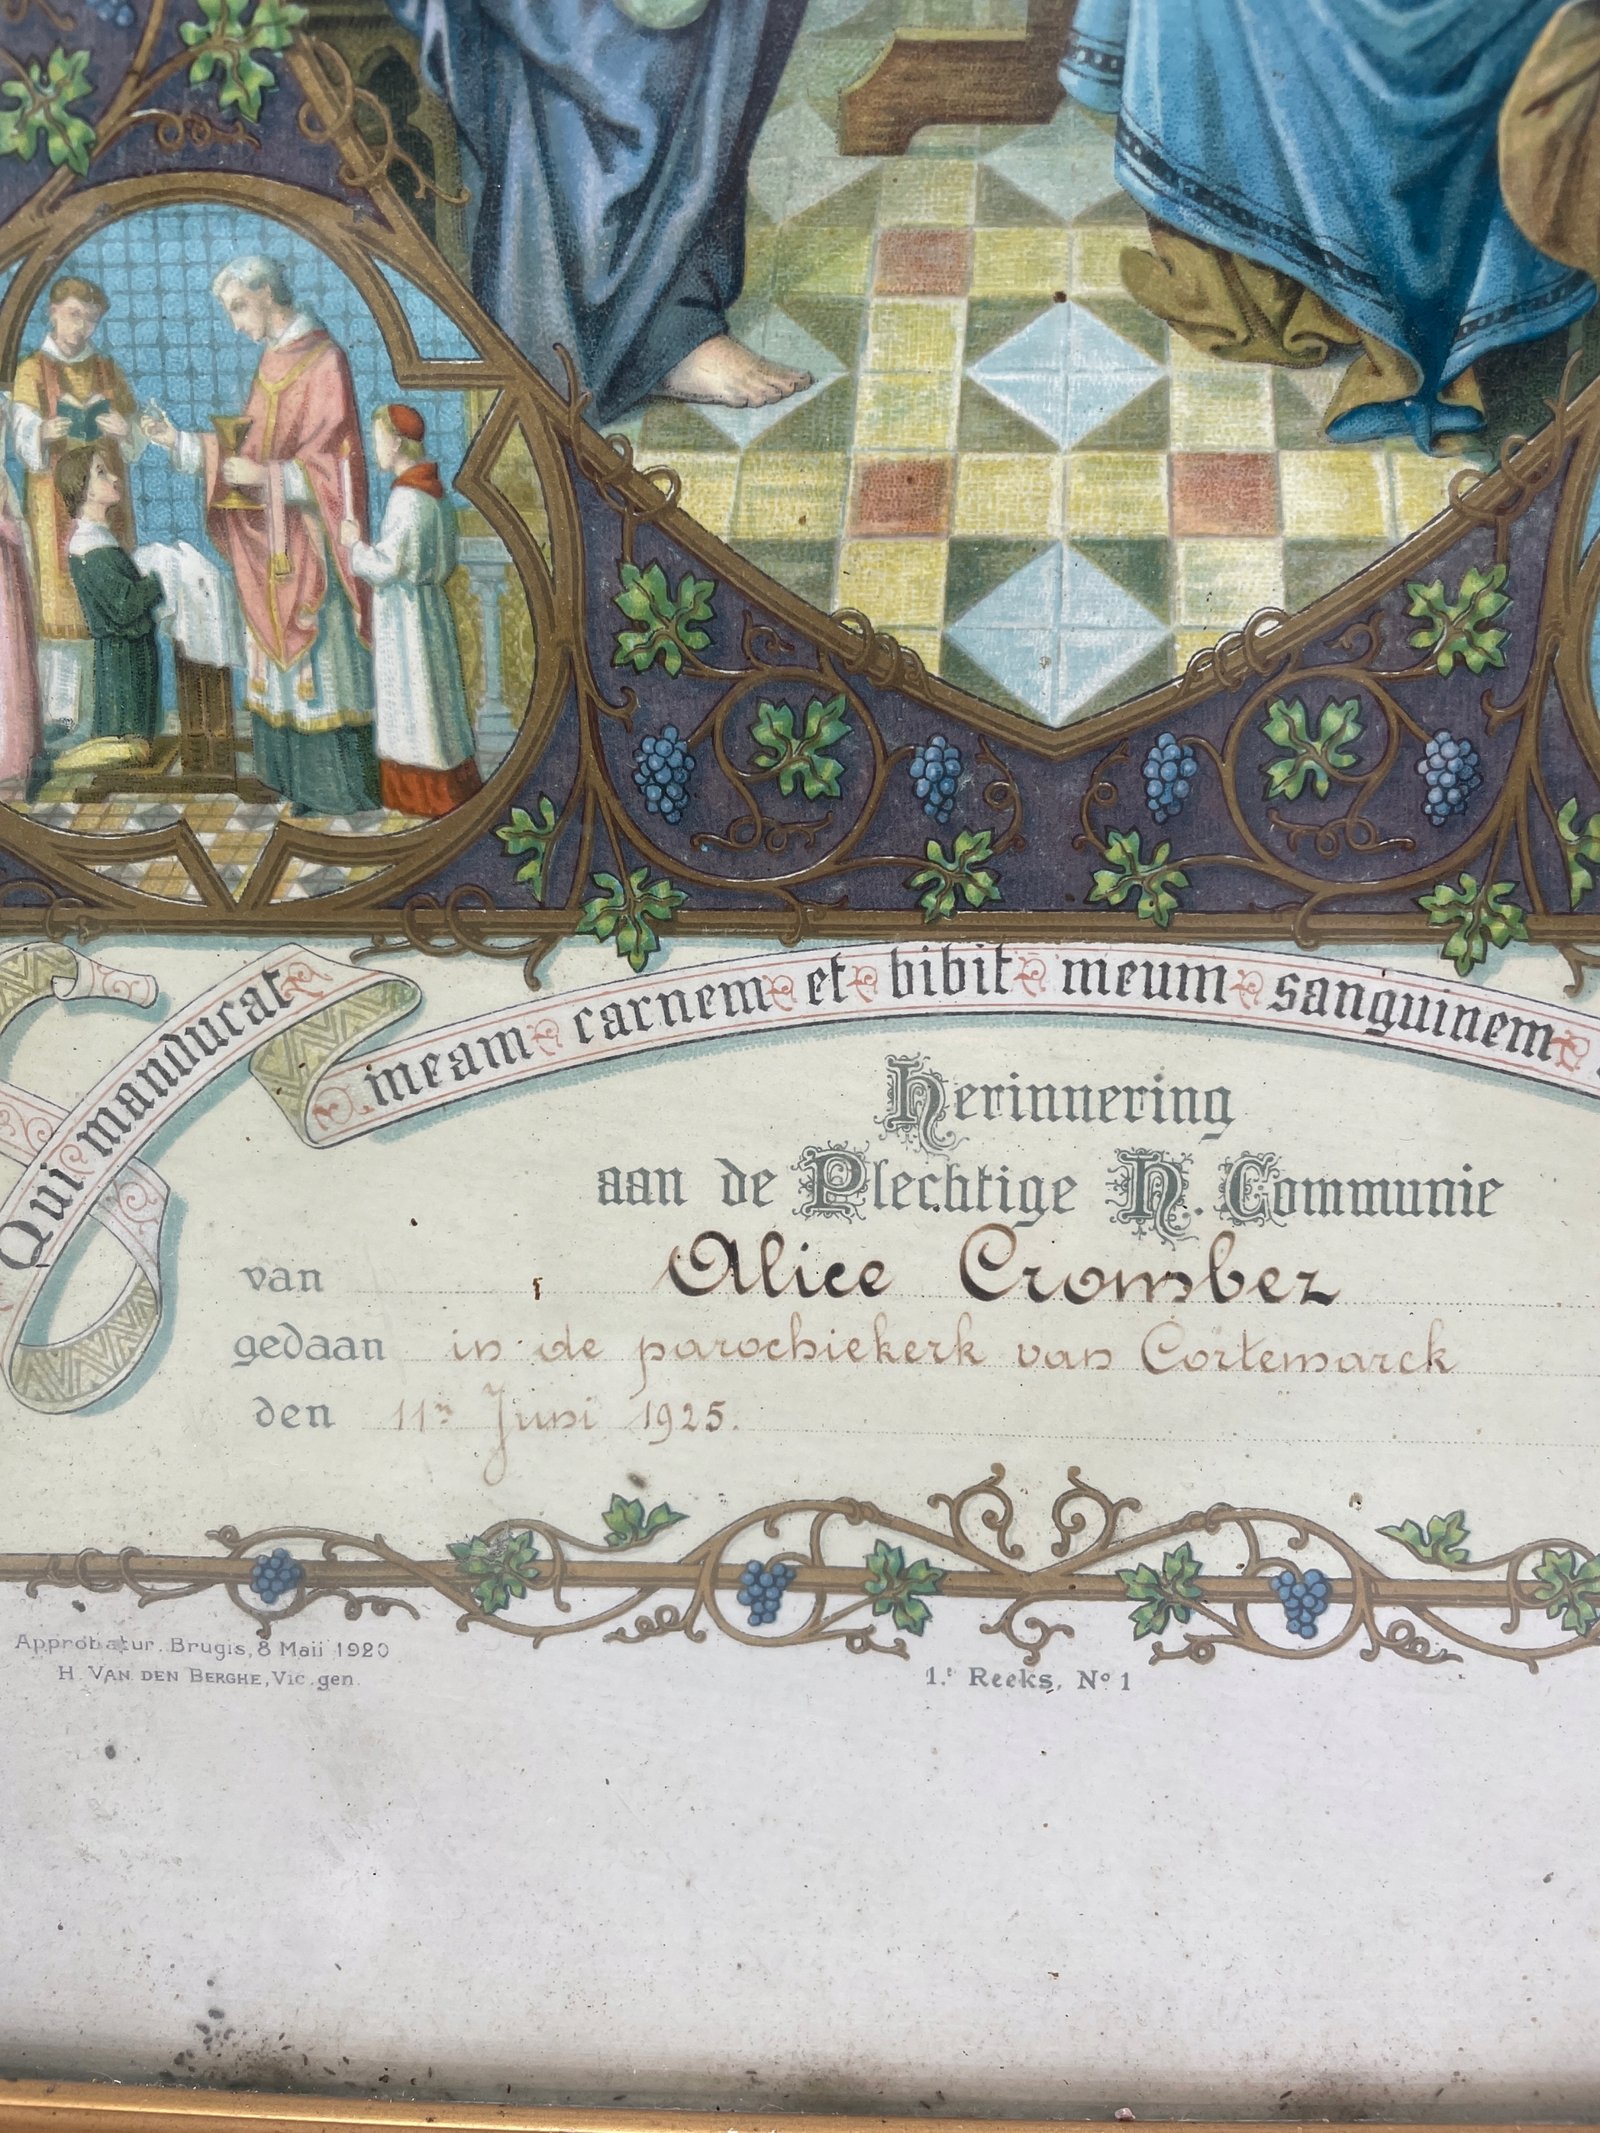 Qui manducat meam carnem et bibit meum sanguinem
Herinnering
aan de Plechtige H. Communie
van Alice Crombez
gedaan in de parochiekerk van Cortemarck
den 11n Juni 1925.
Approbatur. Brugis, 8 Maii 1920
H. VAN DEN BERGHE, Vic. gen.
1.e Reeks, No 1